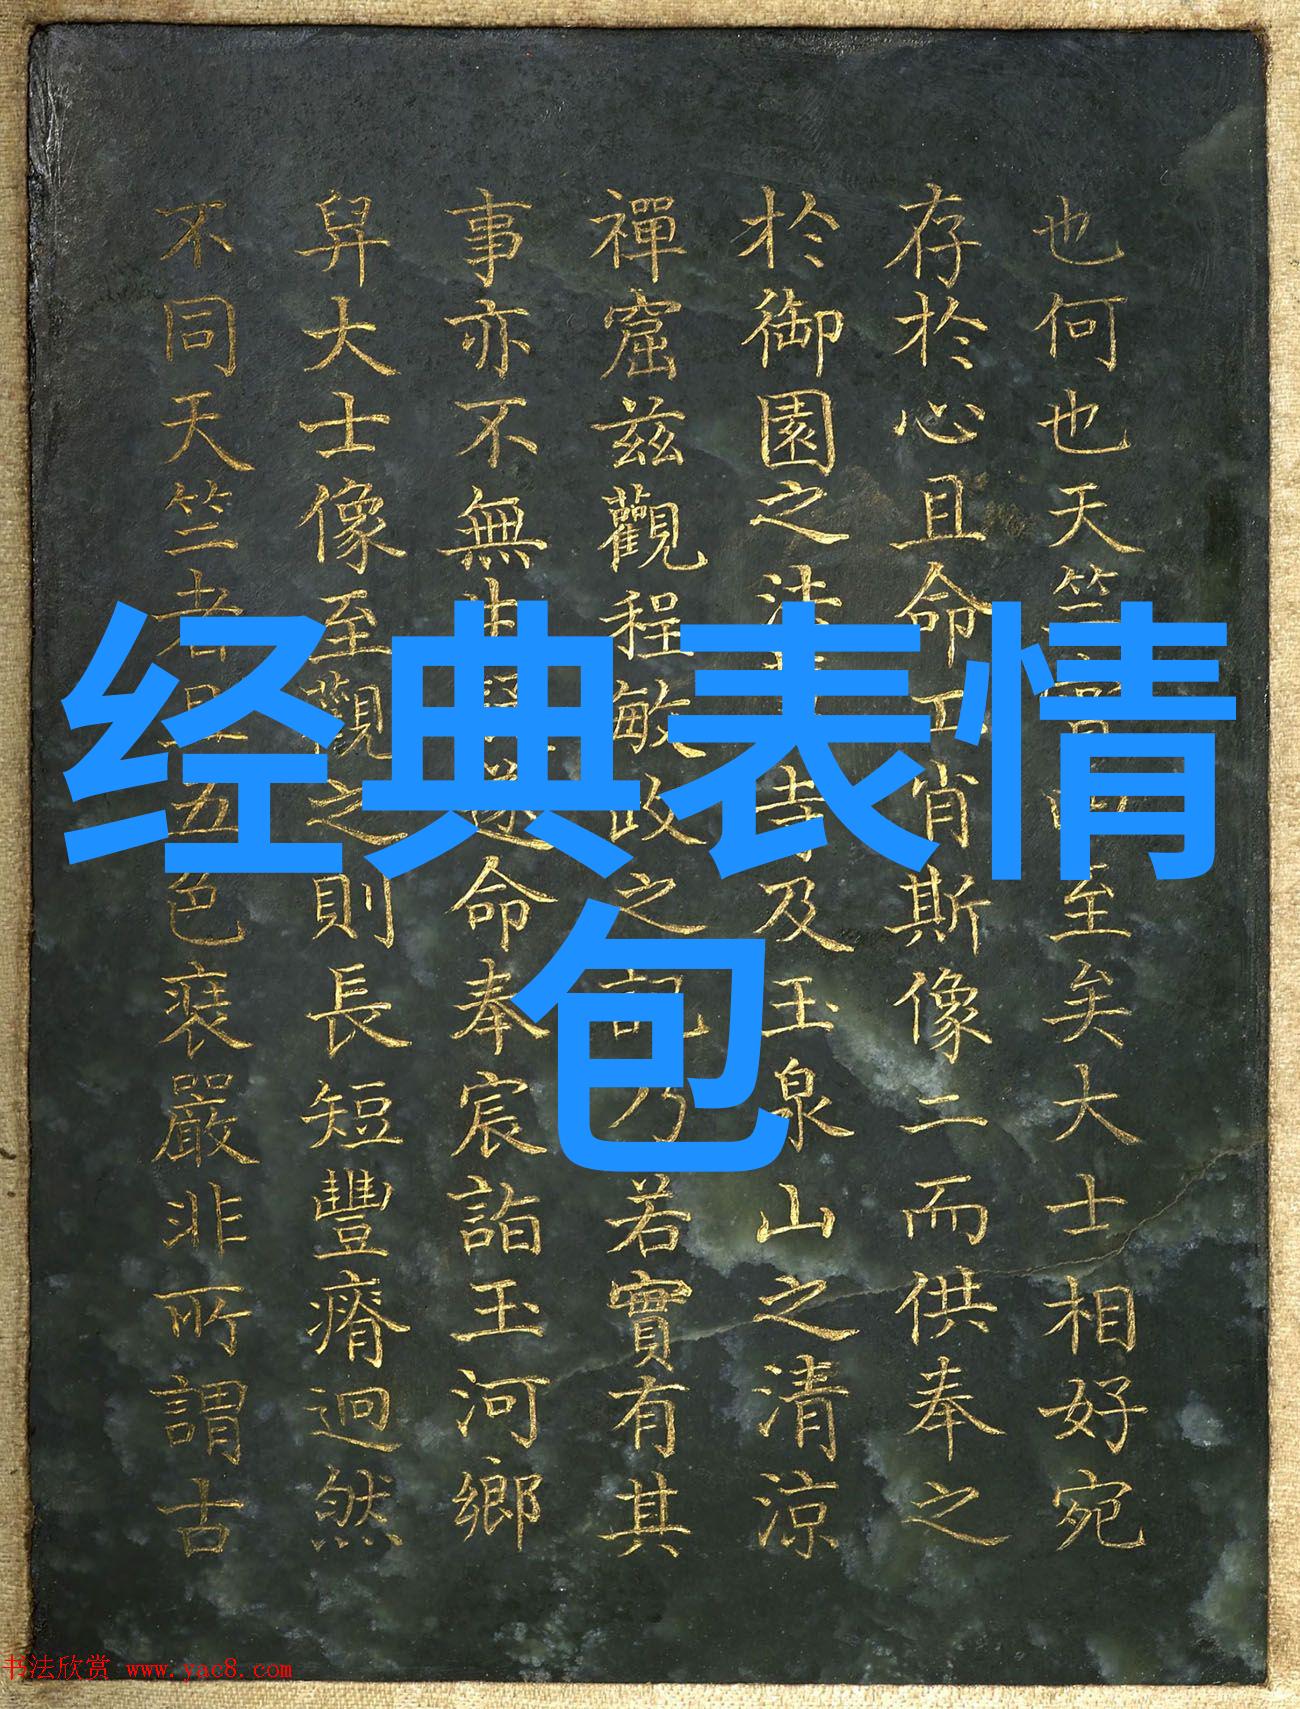 经典表情
包
也何也天竺至矣大士相好宛
存於心且命工肖斯像二而供奉之
於御園之法寺及玉泉山之清涼
禪窟茲觀程敏政之記乃若實有其
事亦不無遂命奉宸詣玉河鄉
舁大士像至觀之則長短豐瘠迥然
不同天竺者且五色裝嚴非所謂古
书法欣赏 www.yac8.com